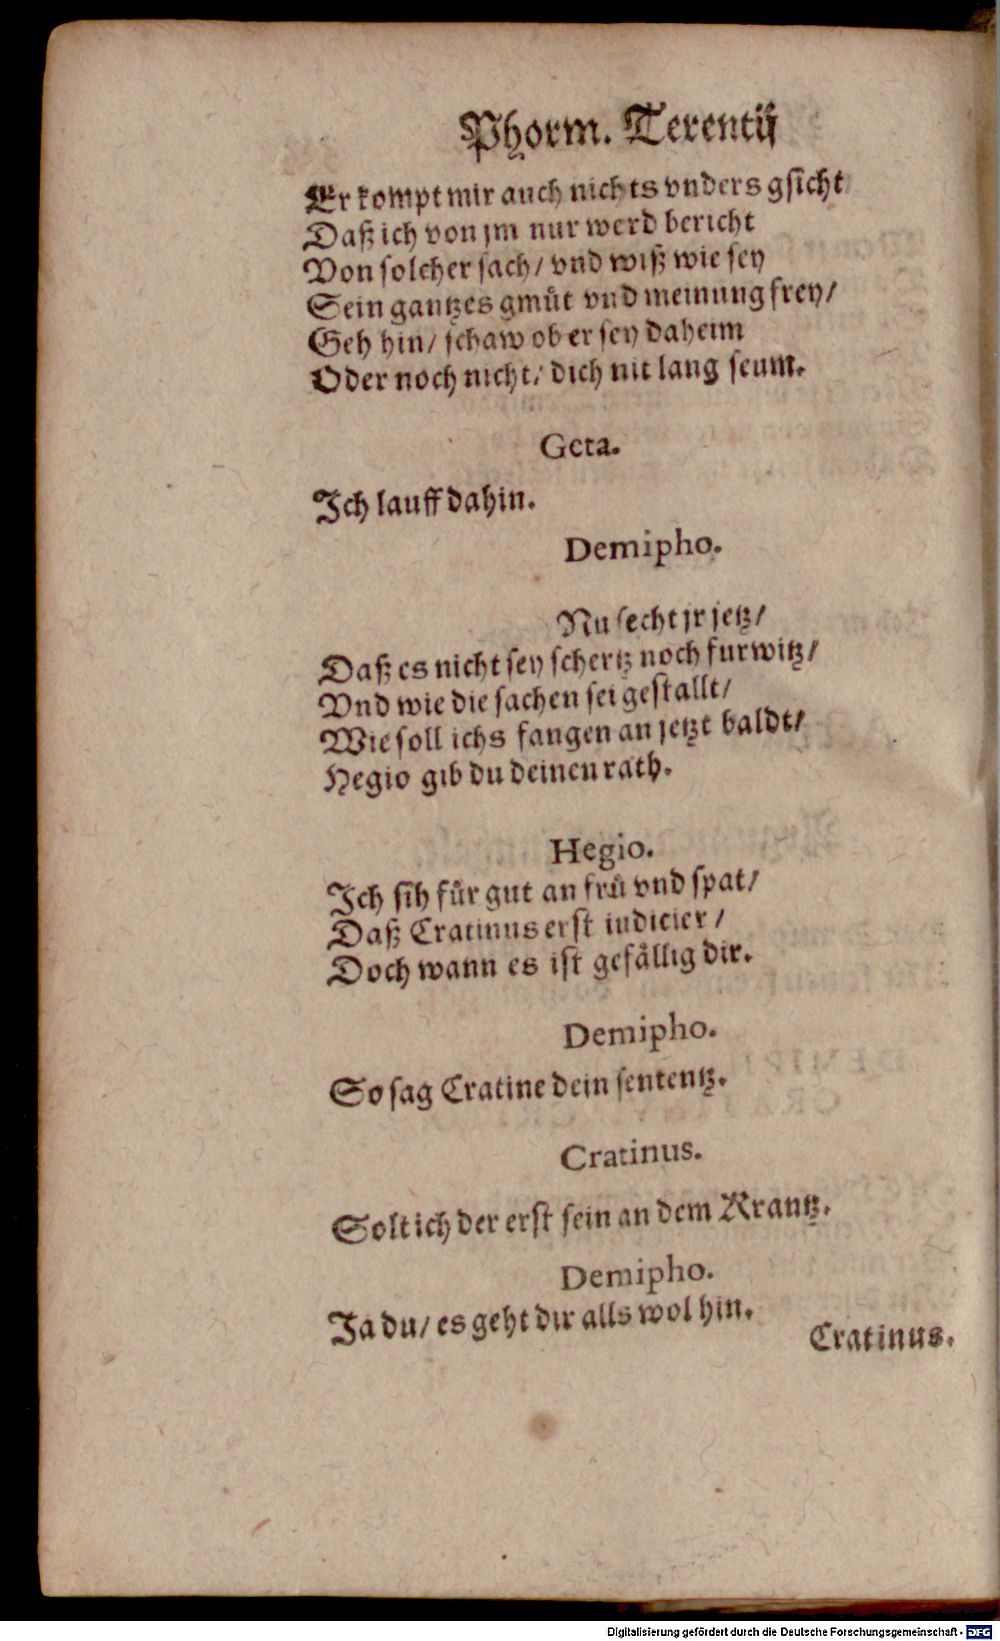 Phorm. Terentij
Er kompt mir auch nichts vnders gsicht
Daß ich von jm nur werd bericht
Von solcher sach/ vnd wiß wie sey
Sein gantzes gmüt vnd meinung frey/
Geh hin/ schaw ob er sey daheim
Oder noch nicht/ dich nit lang seum.
Geta.
Ich lauff dahin.
Demipho.
Nu secht jr jetz/
Daß es nicht sey schertz noch furwitz/
Vnd wie die sachen sei gestallt/
Wie soll ichs fangen an jetzt baldt/
Hegio gib du deinen rath.
Hegio.
Ich sih für gut an frü vnd spat/
Daß Cratinus erst iudicier/
Doch wann es ist gefällig dir.
Demipho.
So sag Cratine dein sententz.
Cratinus.
Solt ich der erst sein an dem Krantz.
Demipho.
Ja du/ es geht dir alls wol hin.
Cratinus.
Digitalisierung gefördert durch die Deutsche Forschungsgemeinschaft - DFG